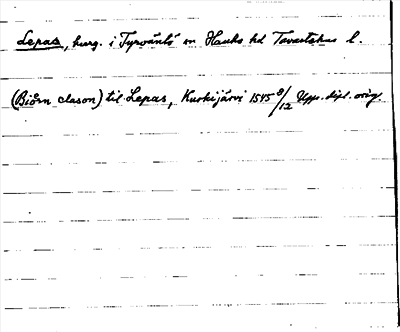 Lepas, herrg. i Tyrväntö sn Hauho hd Tavastehus l.
(Biörn clason) til Lepas, Kurkijärvi 1515 9/12 Upps. dipl. orig.